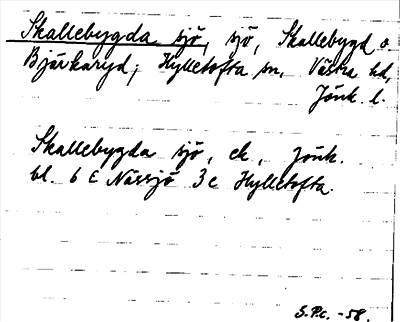 Skallebygda sjö, sjö, Skallebygd o.
Bjärkaryd; Hylletofta sn, Västra hd,
Jönk. l.
Skallebygda sjö, ek, Jönk.
bl. 6 E Nässjö 3 c Hylletofta.
S.P.c. -58.